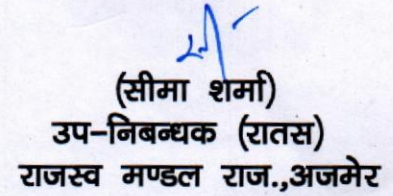 (सीमा शर्मा)
उप-निबन्धक (रातस)
राजस्व मण्डल राज.,अजमेर